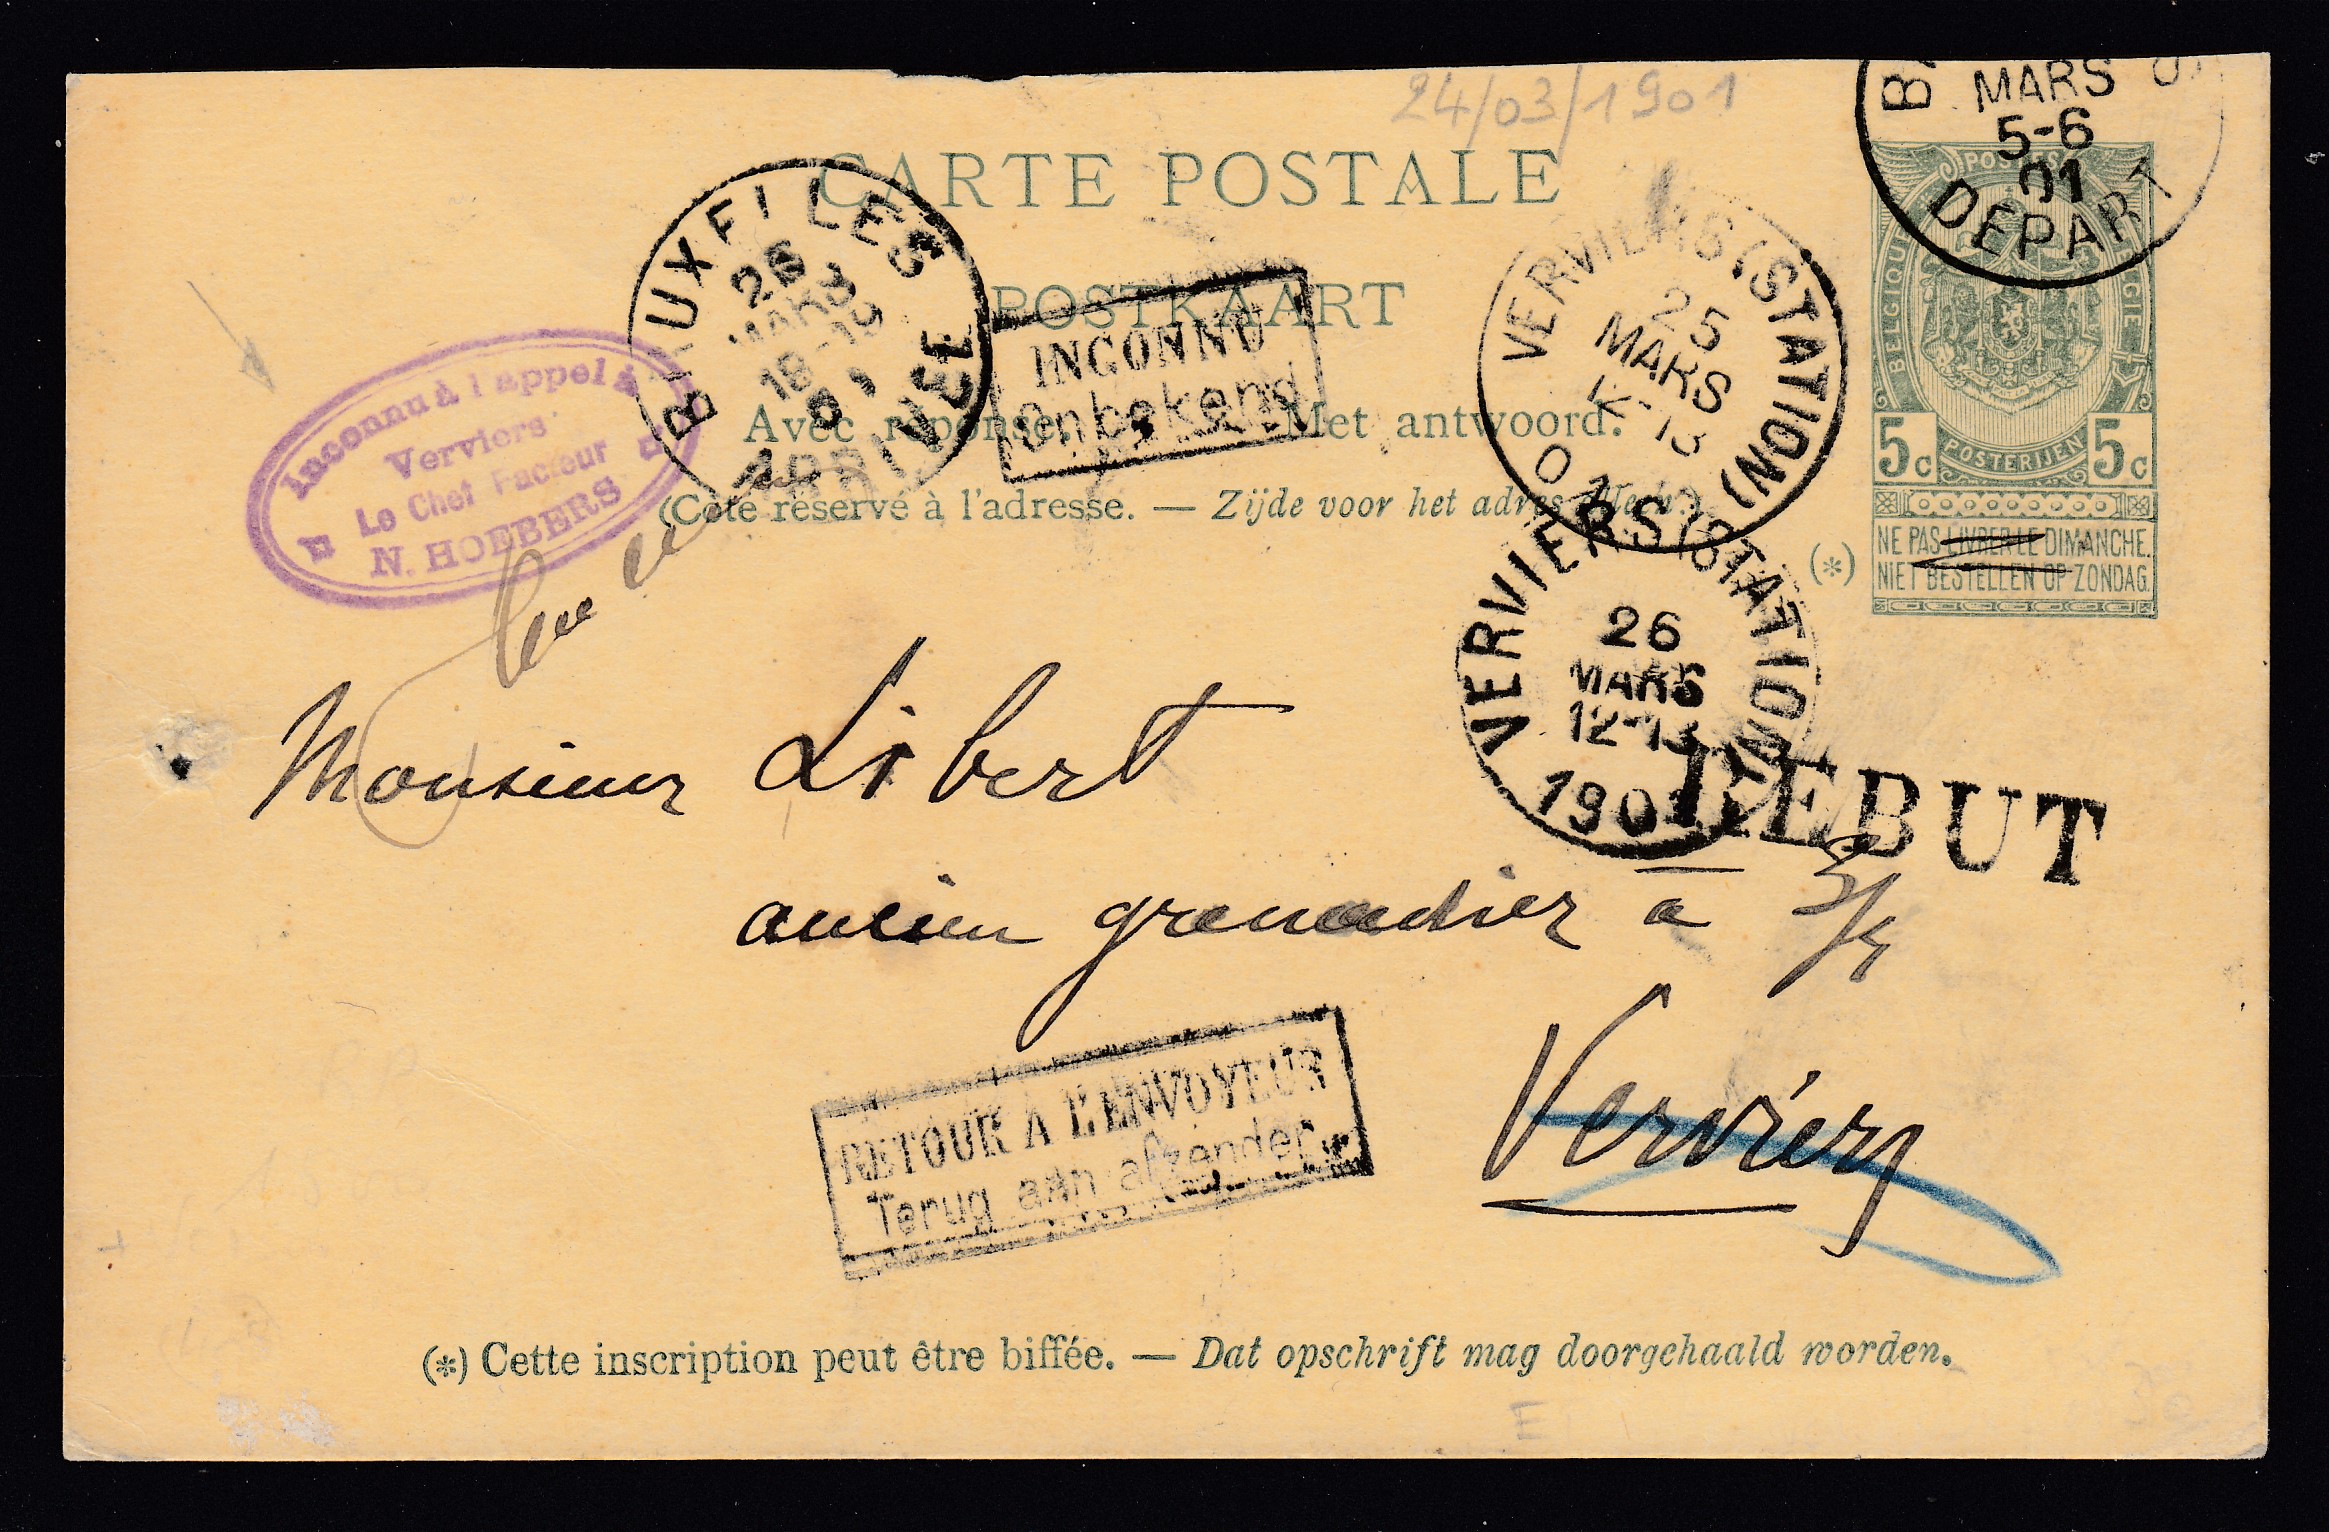 24/03/1901
MARS
5-6
01
DEPART
CARTE POSTALE
POSTKAART
Avec réponse. Met antwoord.
(Côté réservé à l'adresse. — Zijde voor het adres
POSTES
BELGIQUE
BELGIË
5c 5c
POSTERIJEN
(*)
NE PAS LIVRER LE DIMANCHE.
NIET BESTELLEN OP ZONDAG.
26
MARS
18-19
INCONNU
Onbekend
VERVIERS (STATION)
25
MARS
Inconnu à l'appel à
Verviers
Le Chef Facteur
N. HOEBERS
VERVIERS (STATION)
26
MARS
12-13
1901
REBUT
Monsieur Libert
ancien grenadier a
Verviers
RETOUR A L'ENVOYEUR
Terug aan afzender
(*) Cette inscription peut être biffée. — Dat opschrift mag doorgehaald worden.